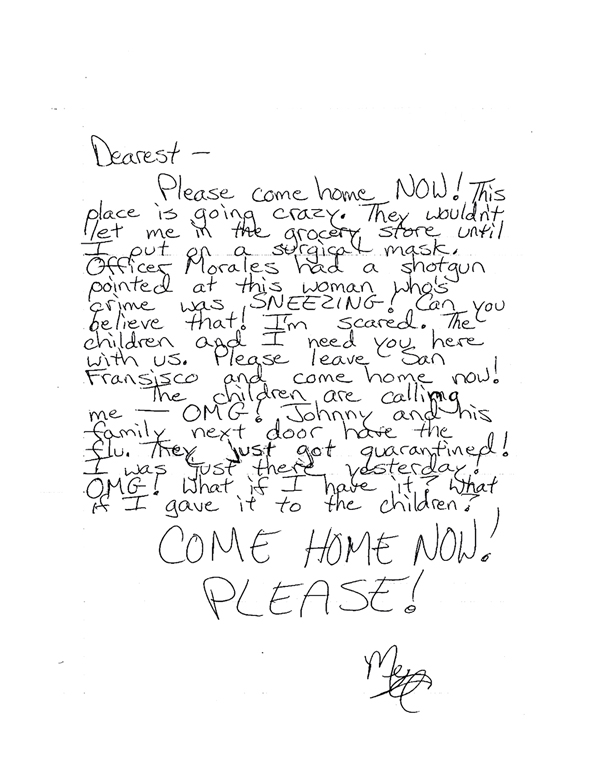 Dearest —
Please come home NOW! This
place is going crazy. They wouldn't
let me in the grocery store until
I put on a surgical mask.
Officer Morales had a shotgun
pointed at this woman who's
crime was SNEEZING! Can you
believe that! I'm scared. The
children and I need you here
with us. Please leave San
Fransisco and come home now!
The children are calling
me — OMG! Johnny and his
family next door have the
flu. They just got quarantined!
I was just there yesterday!
OMG! What if I have it? What
if I gave it to the children?
COME HOME NOW!
PLEASE!